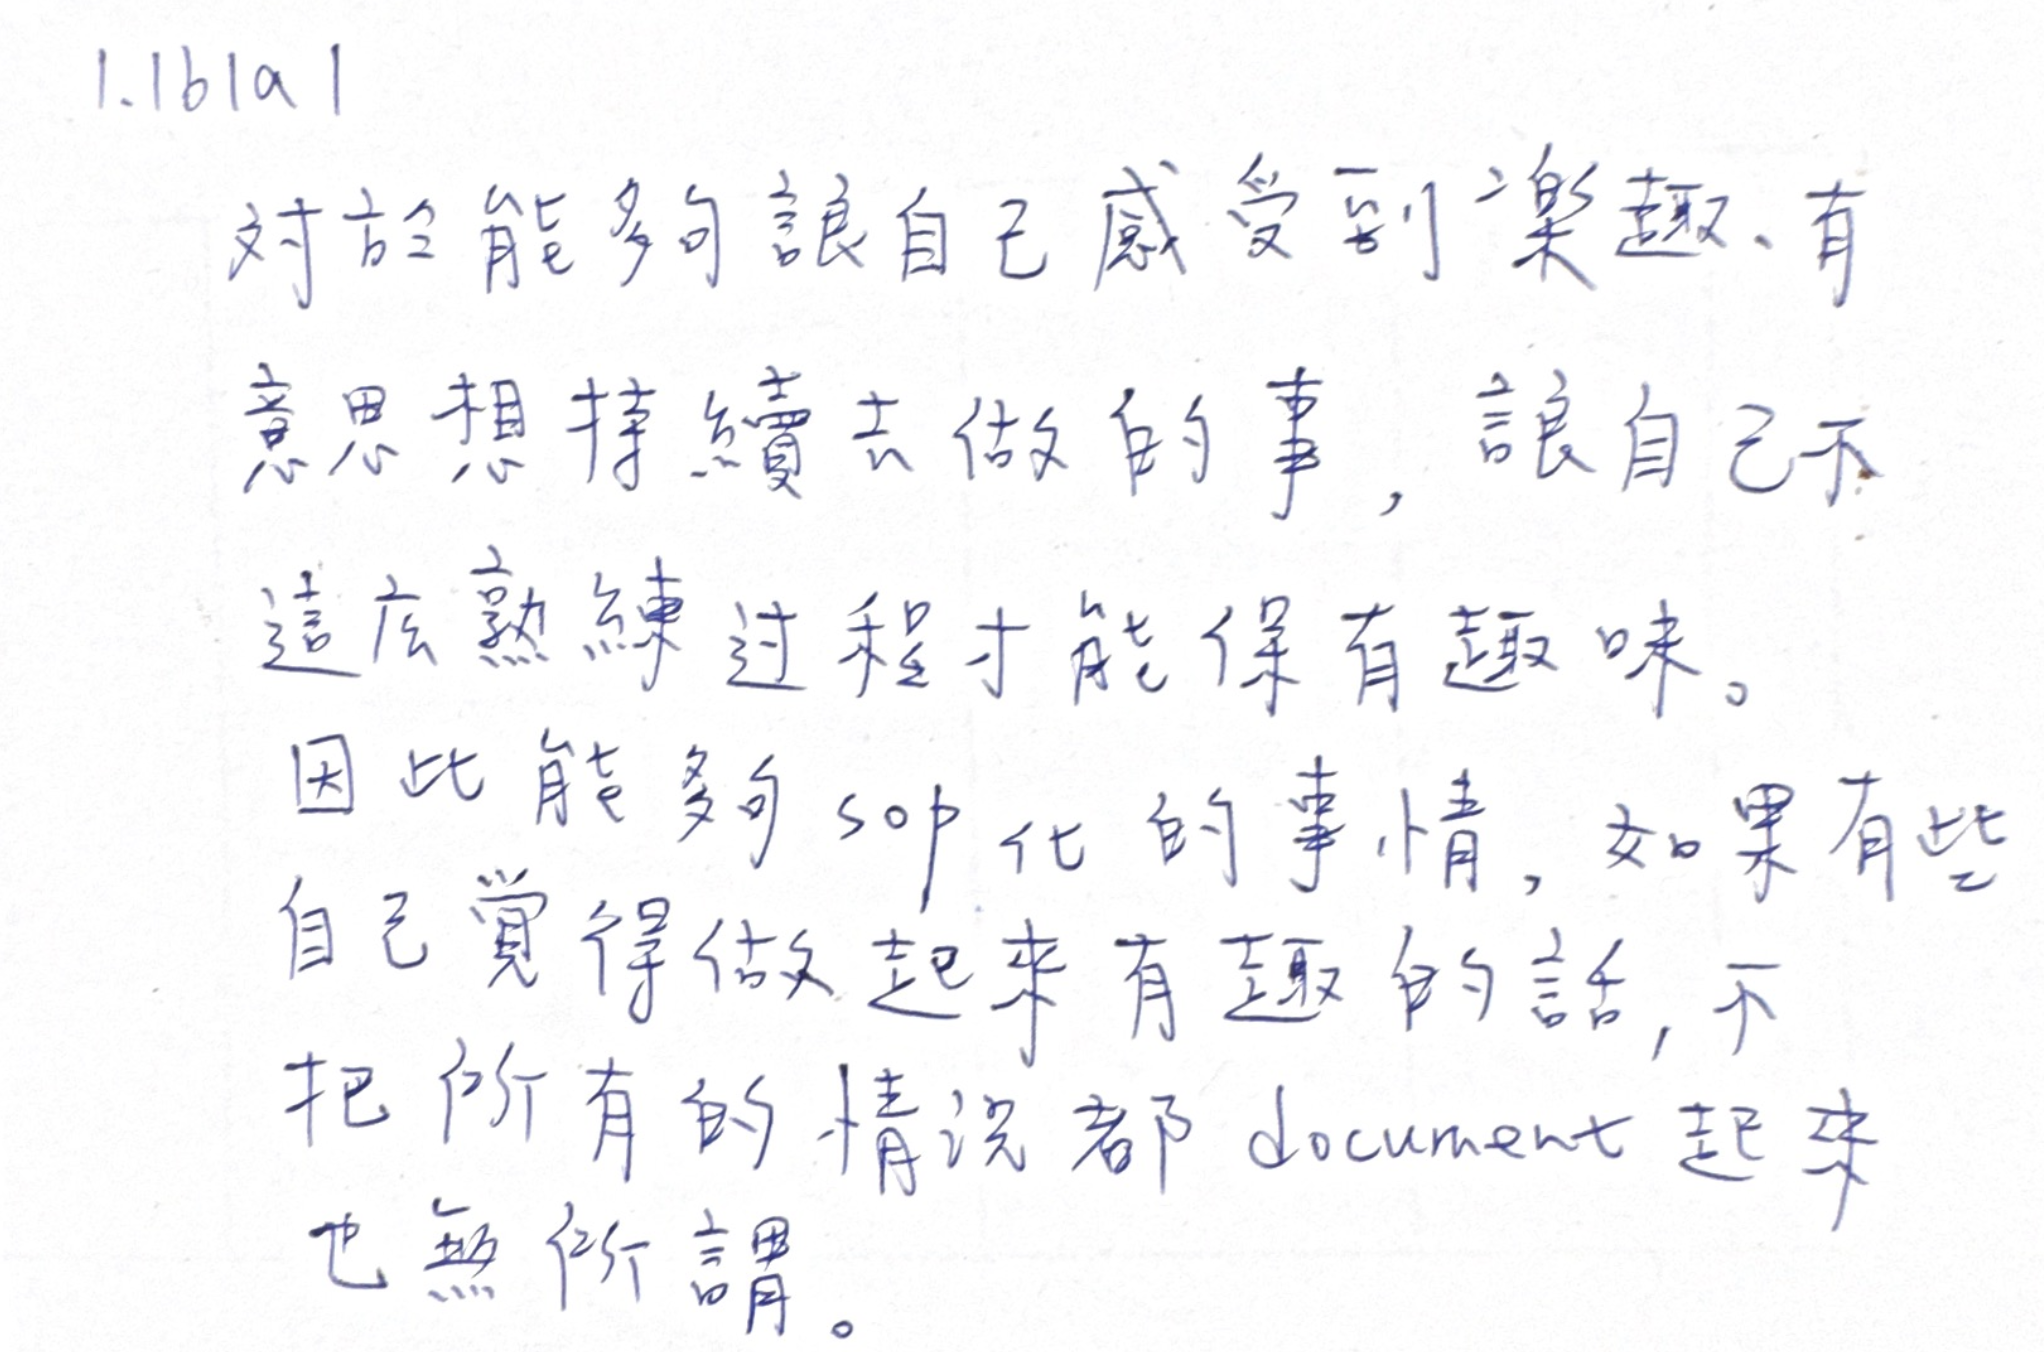 1.1b1a1
对於能夠讓自己感受到樂趣、有
意思想持續去做的事，讓自己不
這麼熟練过程才能保有趣味。
因此能夠sop化的事情，如果有些
自己覺得做起來有趣的話，不
把所有的情況都document起來
也無所謂。